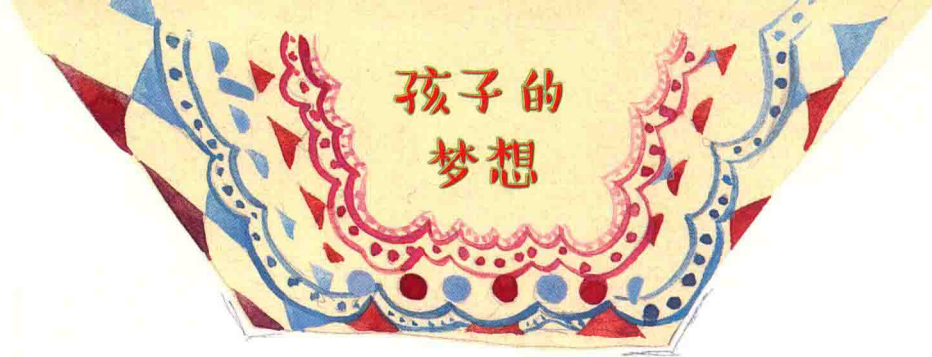 孩子的
梦想